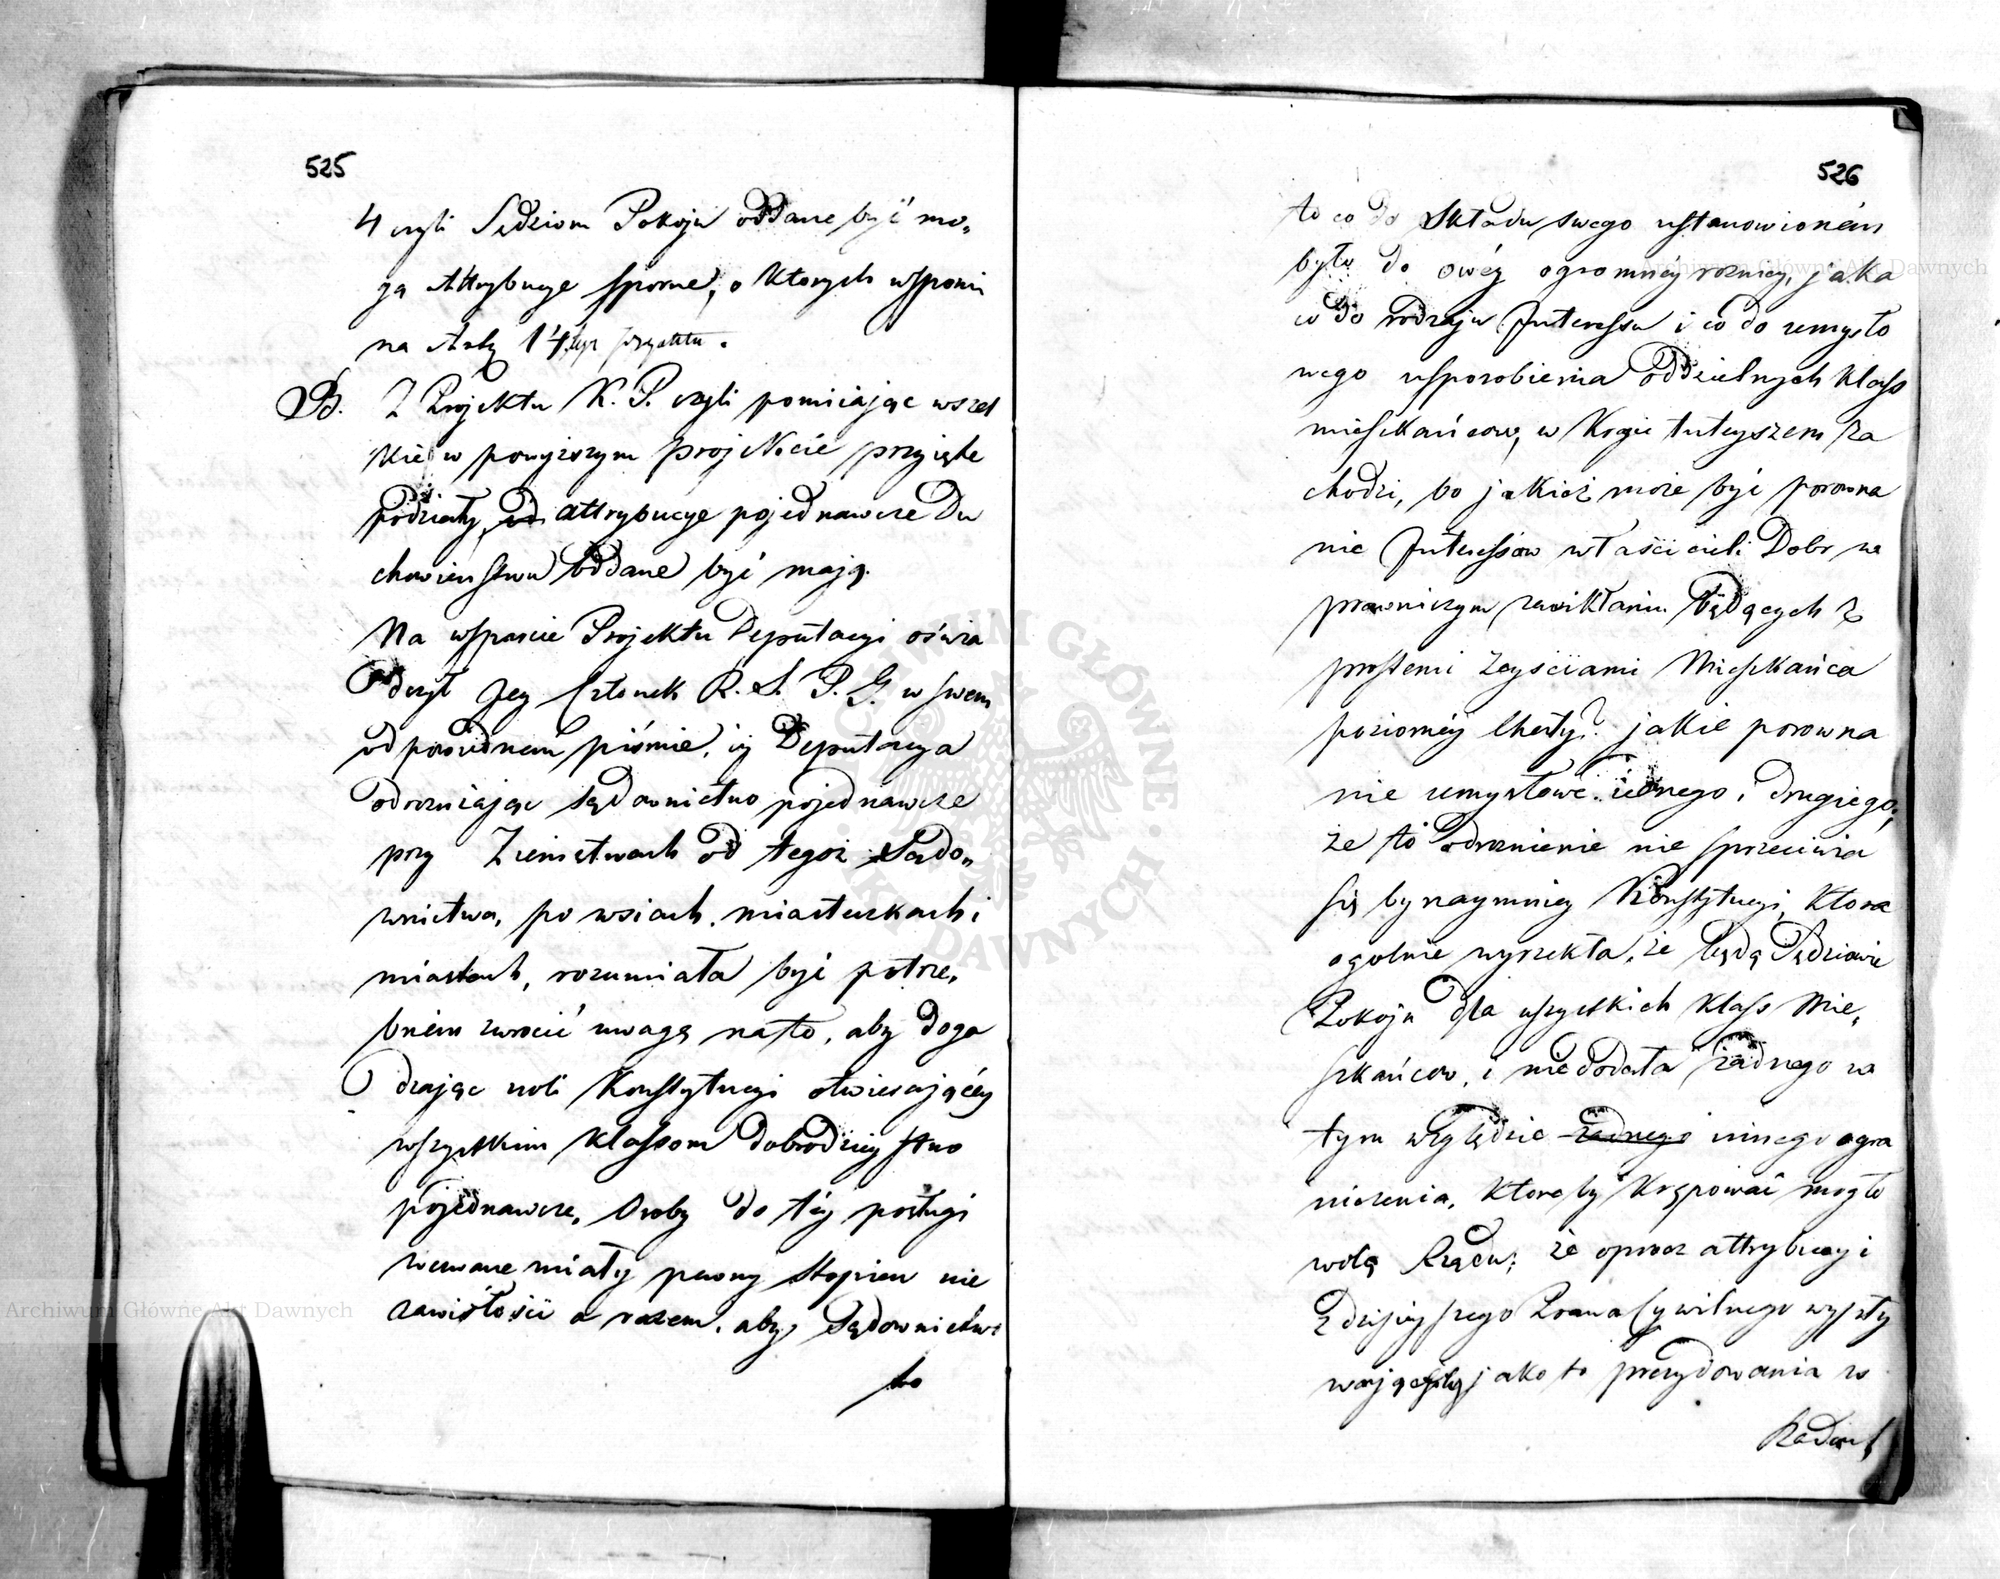 525
4 czyli Sędziom Pokoju oddane być mo„
gą Attrybucye sporne, o ktorych wspomi
na Arty 14.tyr projektu.
B. Z Projektu K. P. czyli pomiiając wszel
kie w powyższym projekcie przyięte
podziały, attrybucye pojednawcze Du
chowieństwu oddane być mają.
Na wsparcie Projektu Deputacyi oświa
dczył Jey Członek R. S. P. G. w swem
odpowiednem piśmie, iż Deputacya
odrozniając sądownictwo pojednawcze
przy Ziemstwach od tegoż Sądo„
wnictwa, po wsiach, miasteczkach i
miastach, rozumiała być potrze„
bném zwrócić uwagę na to, aby doga
dzając woli Konstytucyi otwieraiącéy
wszystkim Klassom dobrodzieystwo
pojednawcze, Osoby do téy posługi
wezwane miały pewny stopien nie
zawisłości a razem, aby Sądownictwo
to
526
to co do składu swego ustanowioném
było do owéy ogromnéy rożnicy, jaka
co do rodzaju Interessu i co do umysło
wego usposobienia oddzielnych Klass
mieszkańcow, w Kraju tuteyszem za
chodzi, bo jakież może być porowna
nie Interessow właścicieli Dobr w
prawniczym zawikłaniu będących z
prostemi zayściami Mieszkańca
poziomey Chaty? jakie porowna
nie umysłowe iednego i drugiego,
że to odroznienie nie sprzeciwia
się bynaymniey Konstytucyi, Ktora
ogolnie wyrzekła, że będą Sędziowie
Pokoju dla wszystkich Klass Mie„
szkańcow, i nie dodała żadnego w
tym względzie żadnego innego ogra
niczenia, Ktoreby Krępować mogło
wolą Rządu; że oprocz attrybucyi
z dzisieyszego Prawa Cywilnego wypły
wających jako to prezydowania w
Radach
Archiwum Główne Akt Dawnych
Archiwum Główne Akt Dawnych
ARCHIWUM GŁÓWNE AKT DAWNYCH